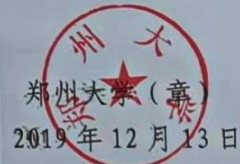 郑州大学
郑州大学（章）
2019 年 12 月 13 日